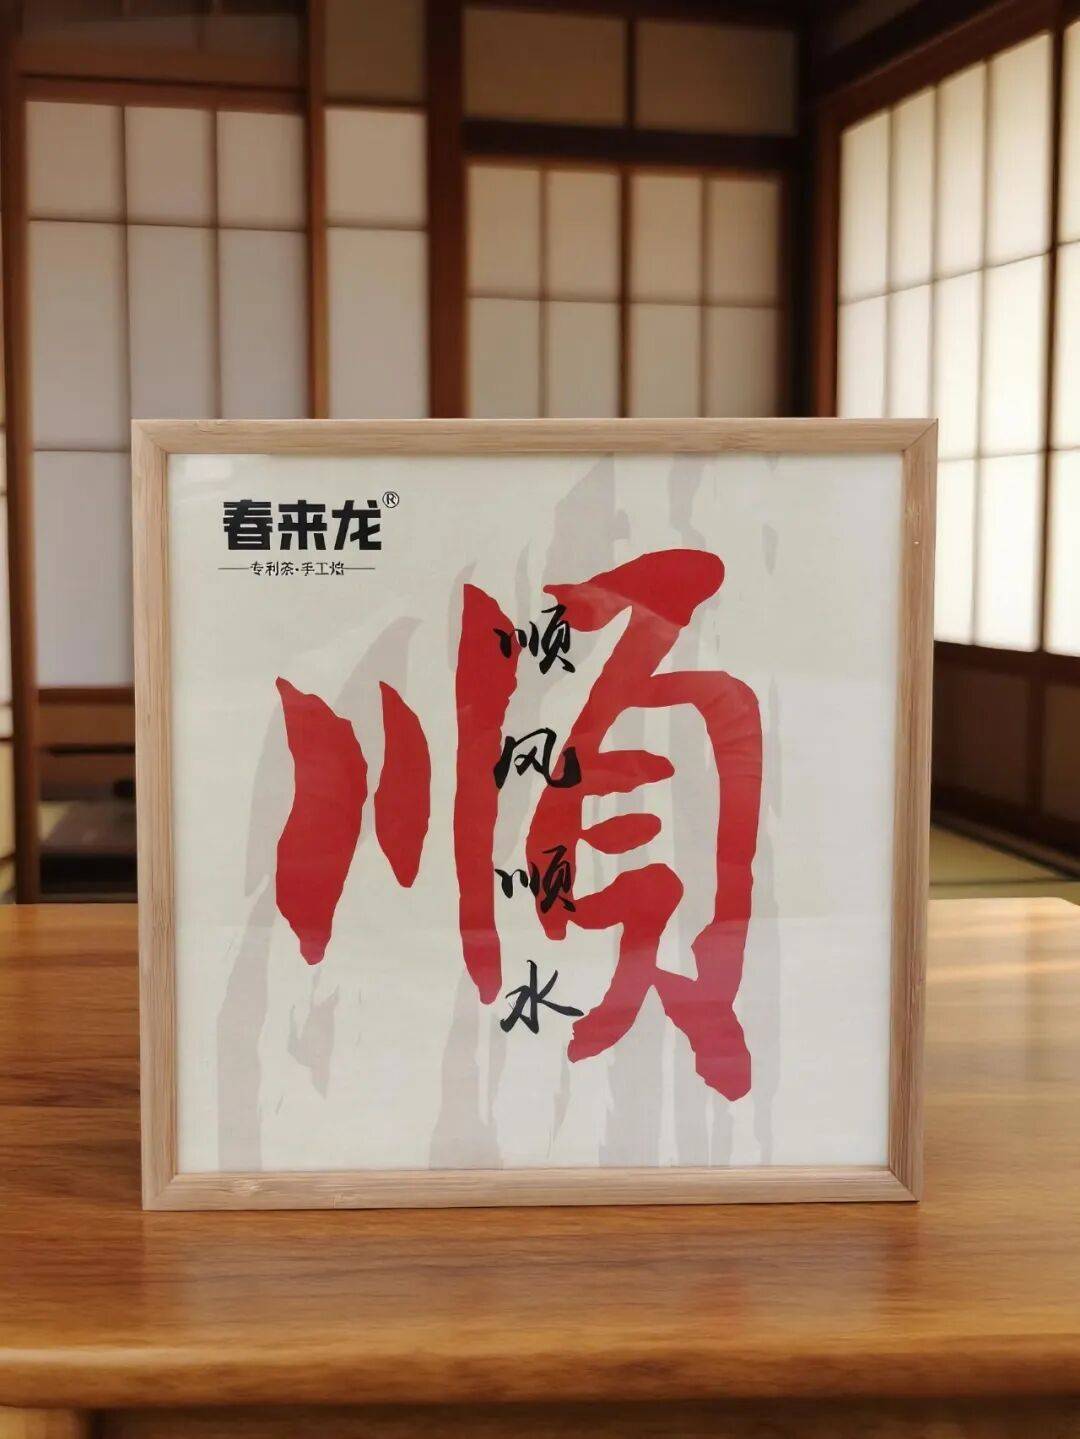 春来龙®
专利茶·手工焙
顺
顺风顺水